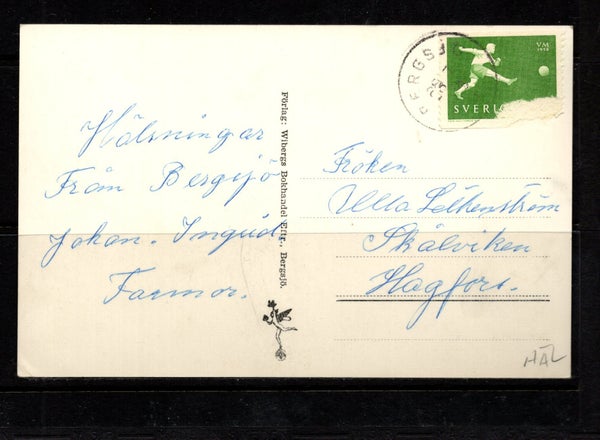 Hälsningar
Från Bergsjö
Johan. Ingrid
Farmor.
Förlag: Wibergs Bokhandel Eftr., Bergsjö.
BERGSJ
VM
1958
SVERIG
Fröken
Ulla
Skålviken
Hagfors.
HÄL